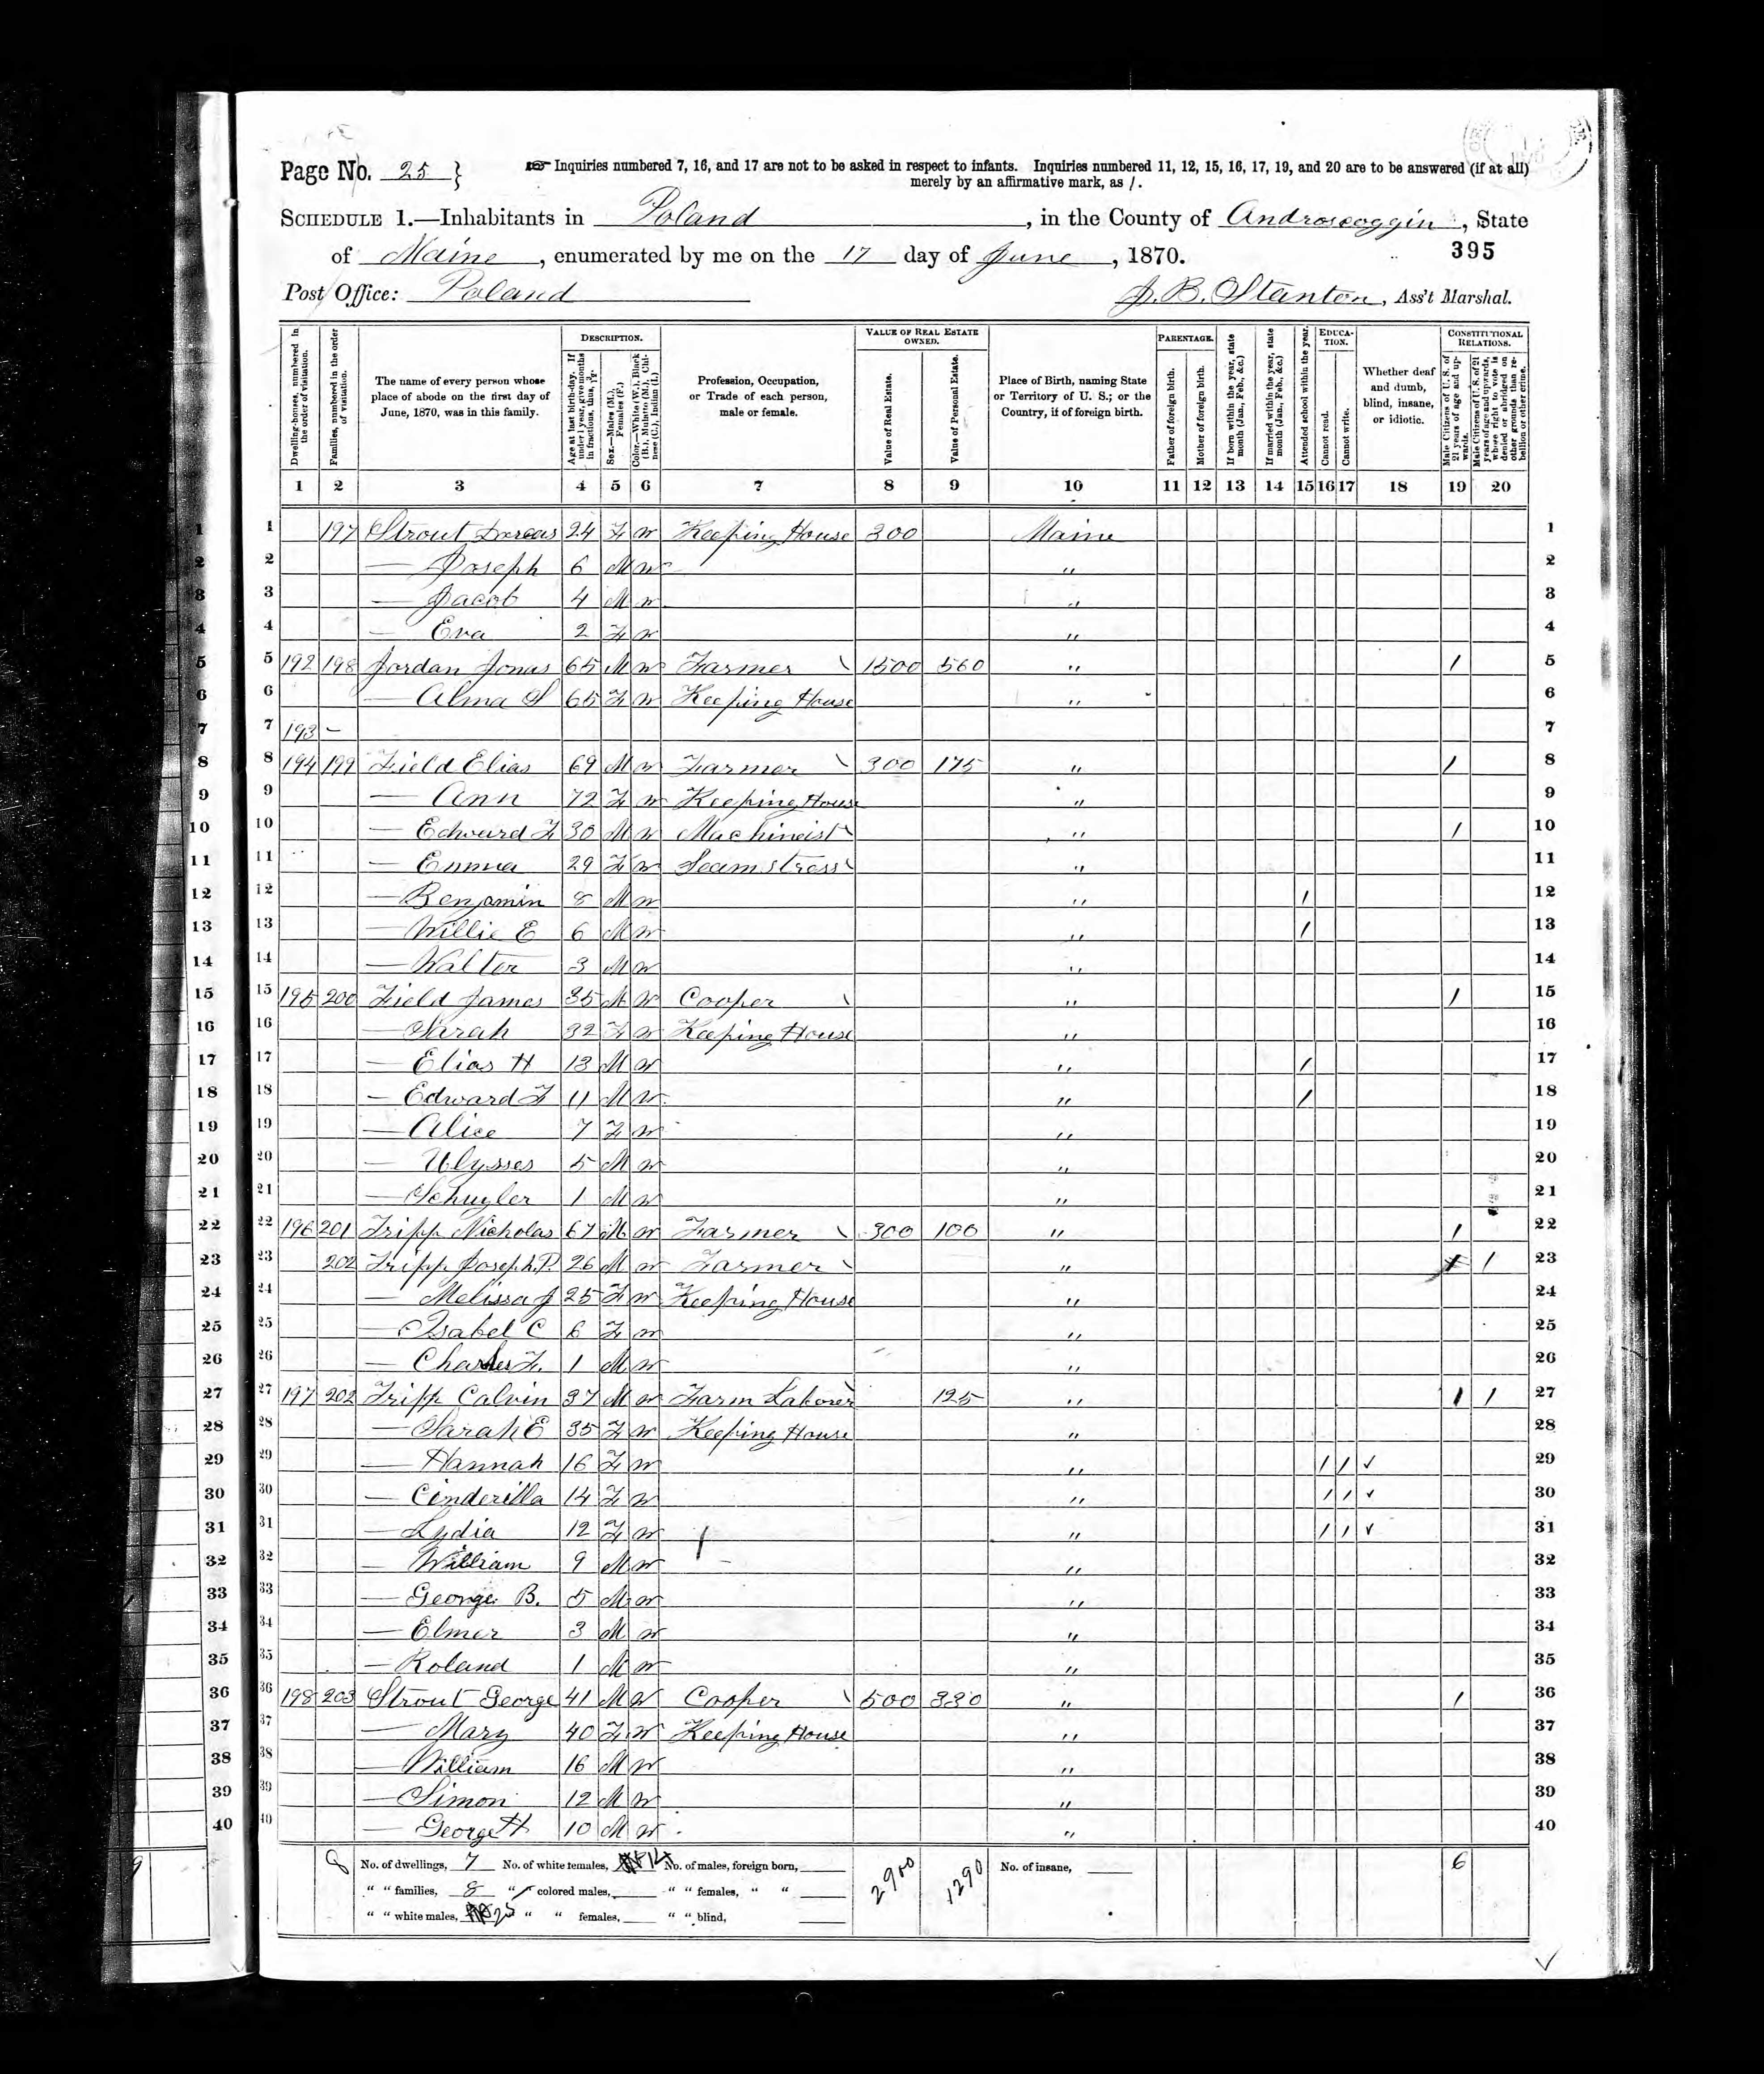 Page No. 25 } ☞ Inquiries numbered 7, 16, and 17 are not to be asked in respect to infants. Inquiries numbered 11, 12, 15, 16, 17, 19, and 20 are to be answered (if at all)
merely by an affirmative mark, as /.
SCHEDULE 1.—Inhabitants in Poland, in the County of Androscoggin, State
of Maine, enumerated by me on the 17 day of June, 1870.
395
Post Office: Poland
J. B. Stanton, Ass't Marshal.
Dwelling-houses, numbered in the order of visitation.
Families, numbered in the order of visitation.
The name of every person whose place of abode on the first day of June, 1870, was in this family.
DESCRIPTION.
Age at last birth-day. If under 1 year, give months in fractions, thus, 3/12.
Sex.—Males (M.), Females (F.)
Color.—White (W.), Black (B.), Mulatto (M.), Chinese (C.), Indian (I.)
Profession, Occupation, or Trade of each person, male or female.
VALUE OF REAL ESTATE OWNED.
Value of Real Estate.
Value of Personal Estate.
Place of Birth, naming State or Territory of U. S.; or the Country, if of foreign birth.
PARENTAGE.
Father of foreign birth.
Mother of foreign birth.
If born within the year, state month (Jan., Feb., &c.)
If married within the year, state month (Jan., Feb., &c.)
Attended school within the year.
EDUCATION.
Cannot read.
Cannot write.
Whether deaf and dumb, blind, insane, or idiotic.
CONSTITUTIONAL RELATIONS.
Male Citizens of U. S. of 21 years of age and upwards.
Male Citizens of U. S. of 21 years of age and upwards, whose right to vote is denied or abridged on other grounds than rebellion or other crime.
1 2 3 4 5 6 7 8 9 10 11 12 13 14 15 16 17 18 19 20
1 197 Strout Dorcas 24 F W Keeping House 300 Maine 1
2 — Joseph 6 M W " 2
3 — Jacob 4 M W " 3
4 — Eva 2 F W " 4
5 192 198 Jordan Jonas 65 M W Farmer 1500 560 " / 5
6 — Alma S 65 F W Keeping House " 6
7 193 – 7
8 194 199 Field Elias 69 M W Farmer 300 175 " / 8
9 — Ann 72 F W Keeping House " 9
10 — Edward F 30 M W Machineist " / 10
11 — Emma 29 F W Seamstress " 11
12 — Benjamin 8 M W " / 12
13 — Willie E 6 M W " / 13
14 — Walter 3 M W " 14
15 195 200 Field James 35 M W Cooper " / 15
16 — Sarah 32 F W Keeping House " 16
17 — Elias H 13 M W " / 17
18 — Edward F 11 M W " / 18
19 — Alice 7 F W " 19
20 — Ulysses 5 M W " 20
21 — Schuyler 1 M W " 21
22 196 201 Tripp Nicholas 67 M W Farmer 300 100 " / 22
23 202 Tripp Joseph P. 26 M W Farmer " / / 23
24 — Melissa J 25 F W Keeping House " 24
25 — Isabel C 6 F W " 25
26 — Charles F. 1 M W " 26
27 197 202 Tripp Calvin 37 M W Farm Laborer 125 " / / 27
28 — Sarah E 35 F W Keeping House " 28
29 — Hannah 16 F W " / / ✓ 29
30 — Cinderilla 14 F W " / / ✓ 30
31 — Lydia 12 F W " / / ✓ 31
32 — William 9 M W " 32
33 — George B. 5 M W " 33
34 — Elmer 3 M W " 34
35 — Roland 1 M W " 35
36 198 203 Strout George 41 M W Cooper 500 330 " / 36
37 — Mary 40 F W Keeping House " 37
38 — William 16 M W " 38
39 — Simon 12 M W " 39
40 — George H 10 M W " 40
No. of dwellings, 7 No. of white females, 14 No. of males, foreign born, 2900 1290 No. of insane, 6
" " families, 8 " " colored males, " " females, " "
" " white males, 25 " " females, " " blind,